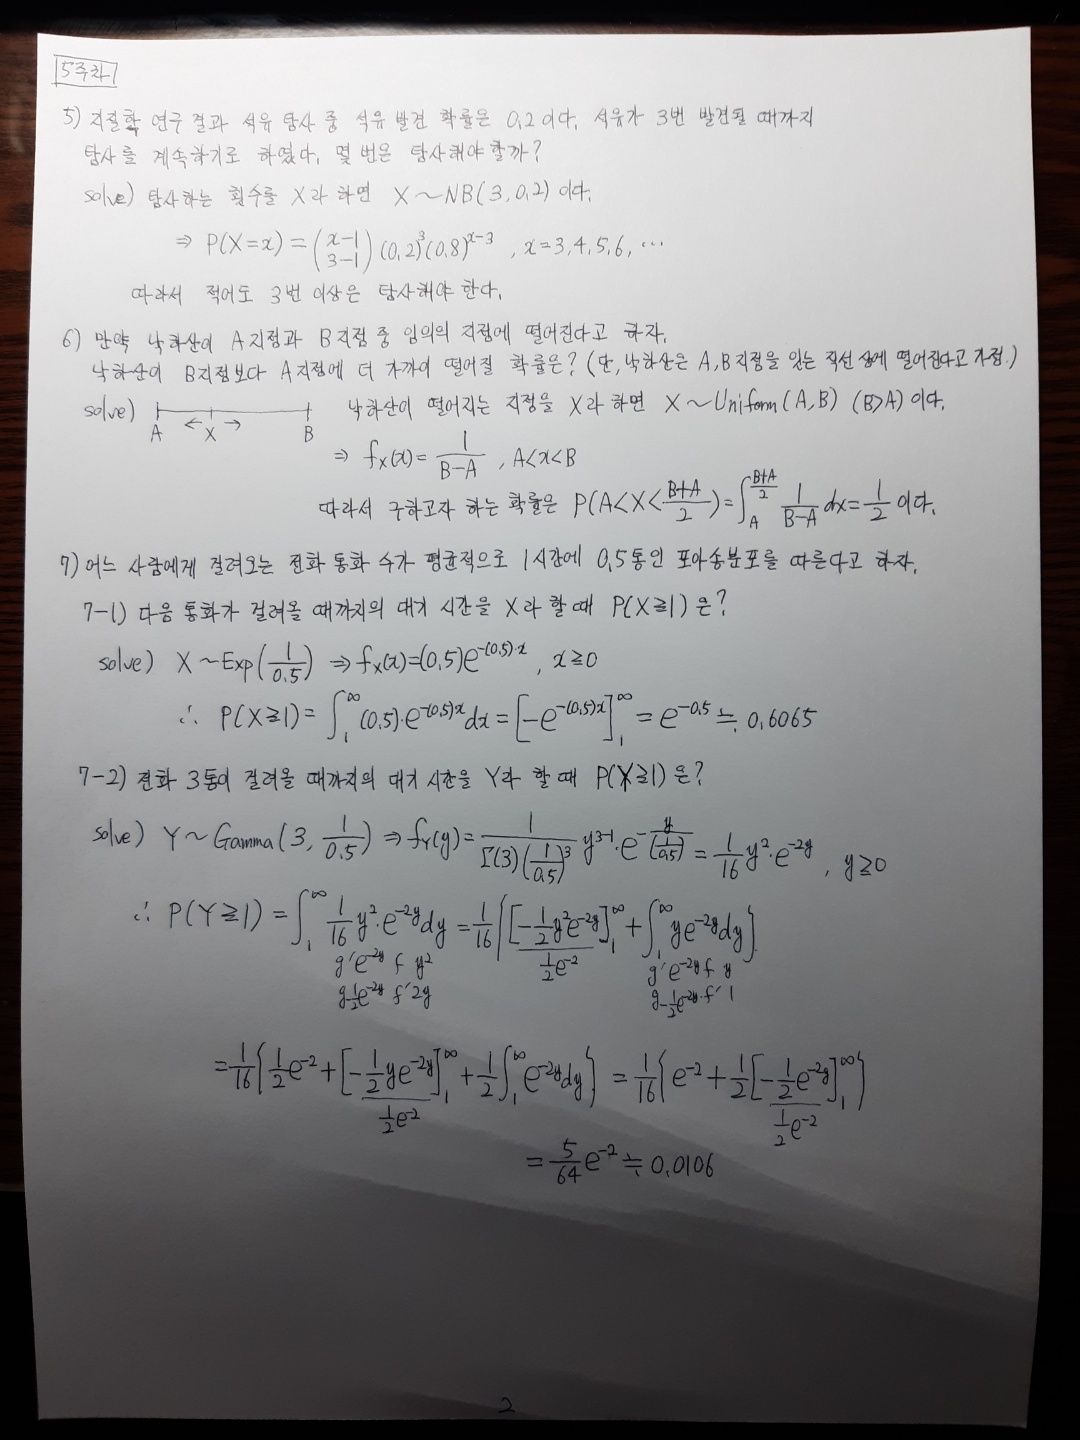 5주차
5) 지질학 연구 결과 석유 탐사 중 석유 발견 확률은 0.2이다. 석유가 3번 발견될 때까지
탐사를 계속하기로 하였다. 몇 번은 탐사해야 할까?
solve) 탐사하는 횟수를 X라 하면 X~NB(3, 0.2) 이다.
⇒ P(X=x) = (x-1 3-1) (0.2)^3 (0.8)^{x-3}, x=3,4,5,6,⋯
따라서 적어도 3번 이상은 탐사해야 한다.
6) 만약 낙하산이 A지점과 B지점 중 임의의 지점에 떨어진다고 하자.
낙하산이 B지점보다 A지점에 더 가까이 떨어질 확률은? (단, 낙하산은 A, B지점을 잇는 직선 상에 떨어진다고 가정.)
solve) A ← X → B 낙하산이 떨어지는 지점을 X라 하면 X~Uniform(A, B) (B>A) 이다.
⇒ f_X(x) = 1/(B-A), A<x<B
따라서 구하고자 하는 확률은 P(A<X<(B+A)/2) = ∫_A^{(B+A)/2} 1/(B-A) dx = 1/2 이다.
7) 어느 사람에게 걸려오는 전화 통화 수가 평균적으로 1시간에 0.5통인 포아송분포를 따른다고 하자.
7-1) 다음 통화가 걸려올 때까지의 대기 시간을 X라 할 때 P(X≥1)은?
solve) X~Exp(1/0.5) ⇒ f_X(x)=(0.5)e^{-(0.5)·x}, x≥0
∴ P(X≥1) = ∫_1^∞ (0.5)·e^{-(0.5)x} dx = [-e^{-(0.5)x}]_1^∞ = e^{-0.5} ≒ 0.6065
7-2) 전화 3통이 걸려올 때까지의 대기 시간을 Y라 할 때 P(Y≥1)은?
solve) Y~Gamma(3, 1/0.5) ⇒ f_Y(y) = 1/(Γ(3)(1/0.5)^3) y^{3-1}·e^{-y/(1/0.5)} = 1/16 y^2·e^{-2y}, y≥0
∴ P(Y≥1) = ∫_1^∞ 1/16 y^2·e^{-2y} dy = 1/16 {[-1/2 y^2 e^{-2y}]_1^∞ + ∫_1^∞ y e^{-2y} dy}
g' e^{-2y} f y^2 1/2 e^{-2} g' e^{-2y} f y
g -1/2 e^{-2y} f' 2y g -1/2 e^{-2y} f' 1
= 1/16 {1/2 e^{-2} + [-1/2 y e^{-2y}]_1^∞ + 1/2 ∫_1^∞ e^{-2y} dy} = 1/16 {e^{-2} + 1/2 [-1/2 e^{-2y}]_1^∞}
1/2 e^{-2} 1/2 e^{-2}
= 5/64 e^{-2} ≒ 0.0106
2